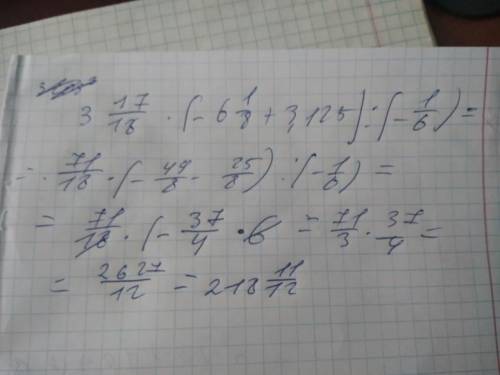 3 17/18 · (- 6 1/8 + 3,125) : (- 1/6) =
= 71/18 · (- 49/8 - 25/8) : (- 1/6) =
= 71/18 · (- 37/4 · 6 = 71/3 · 37/4 =
= 2627/12 = 218 11/12